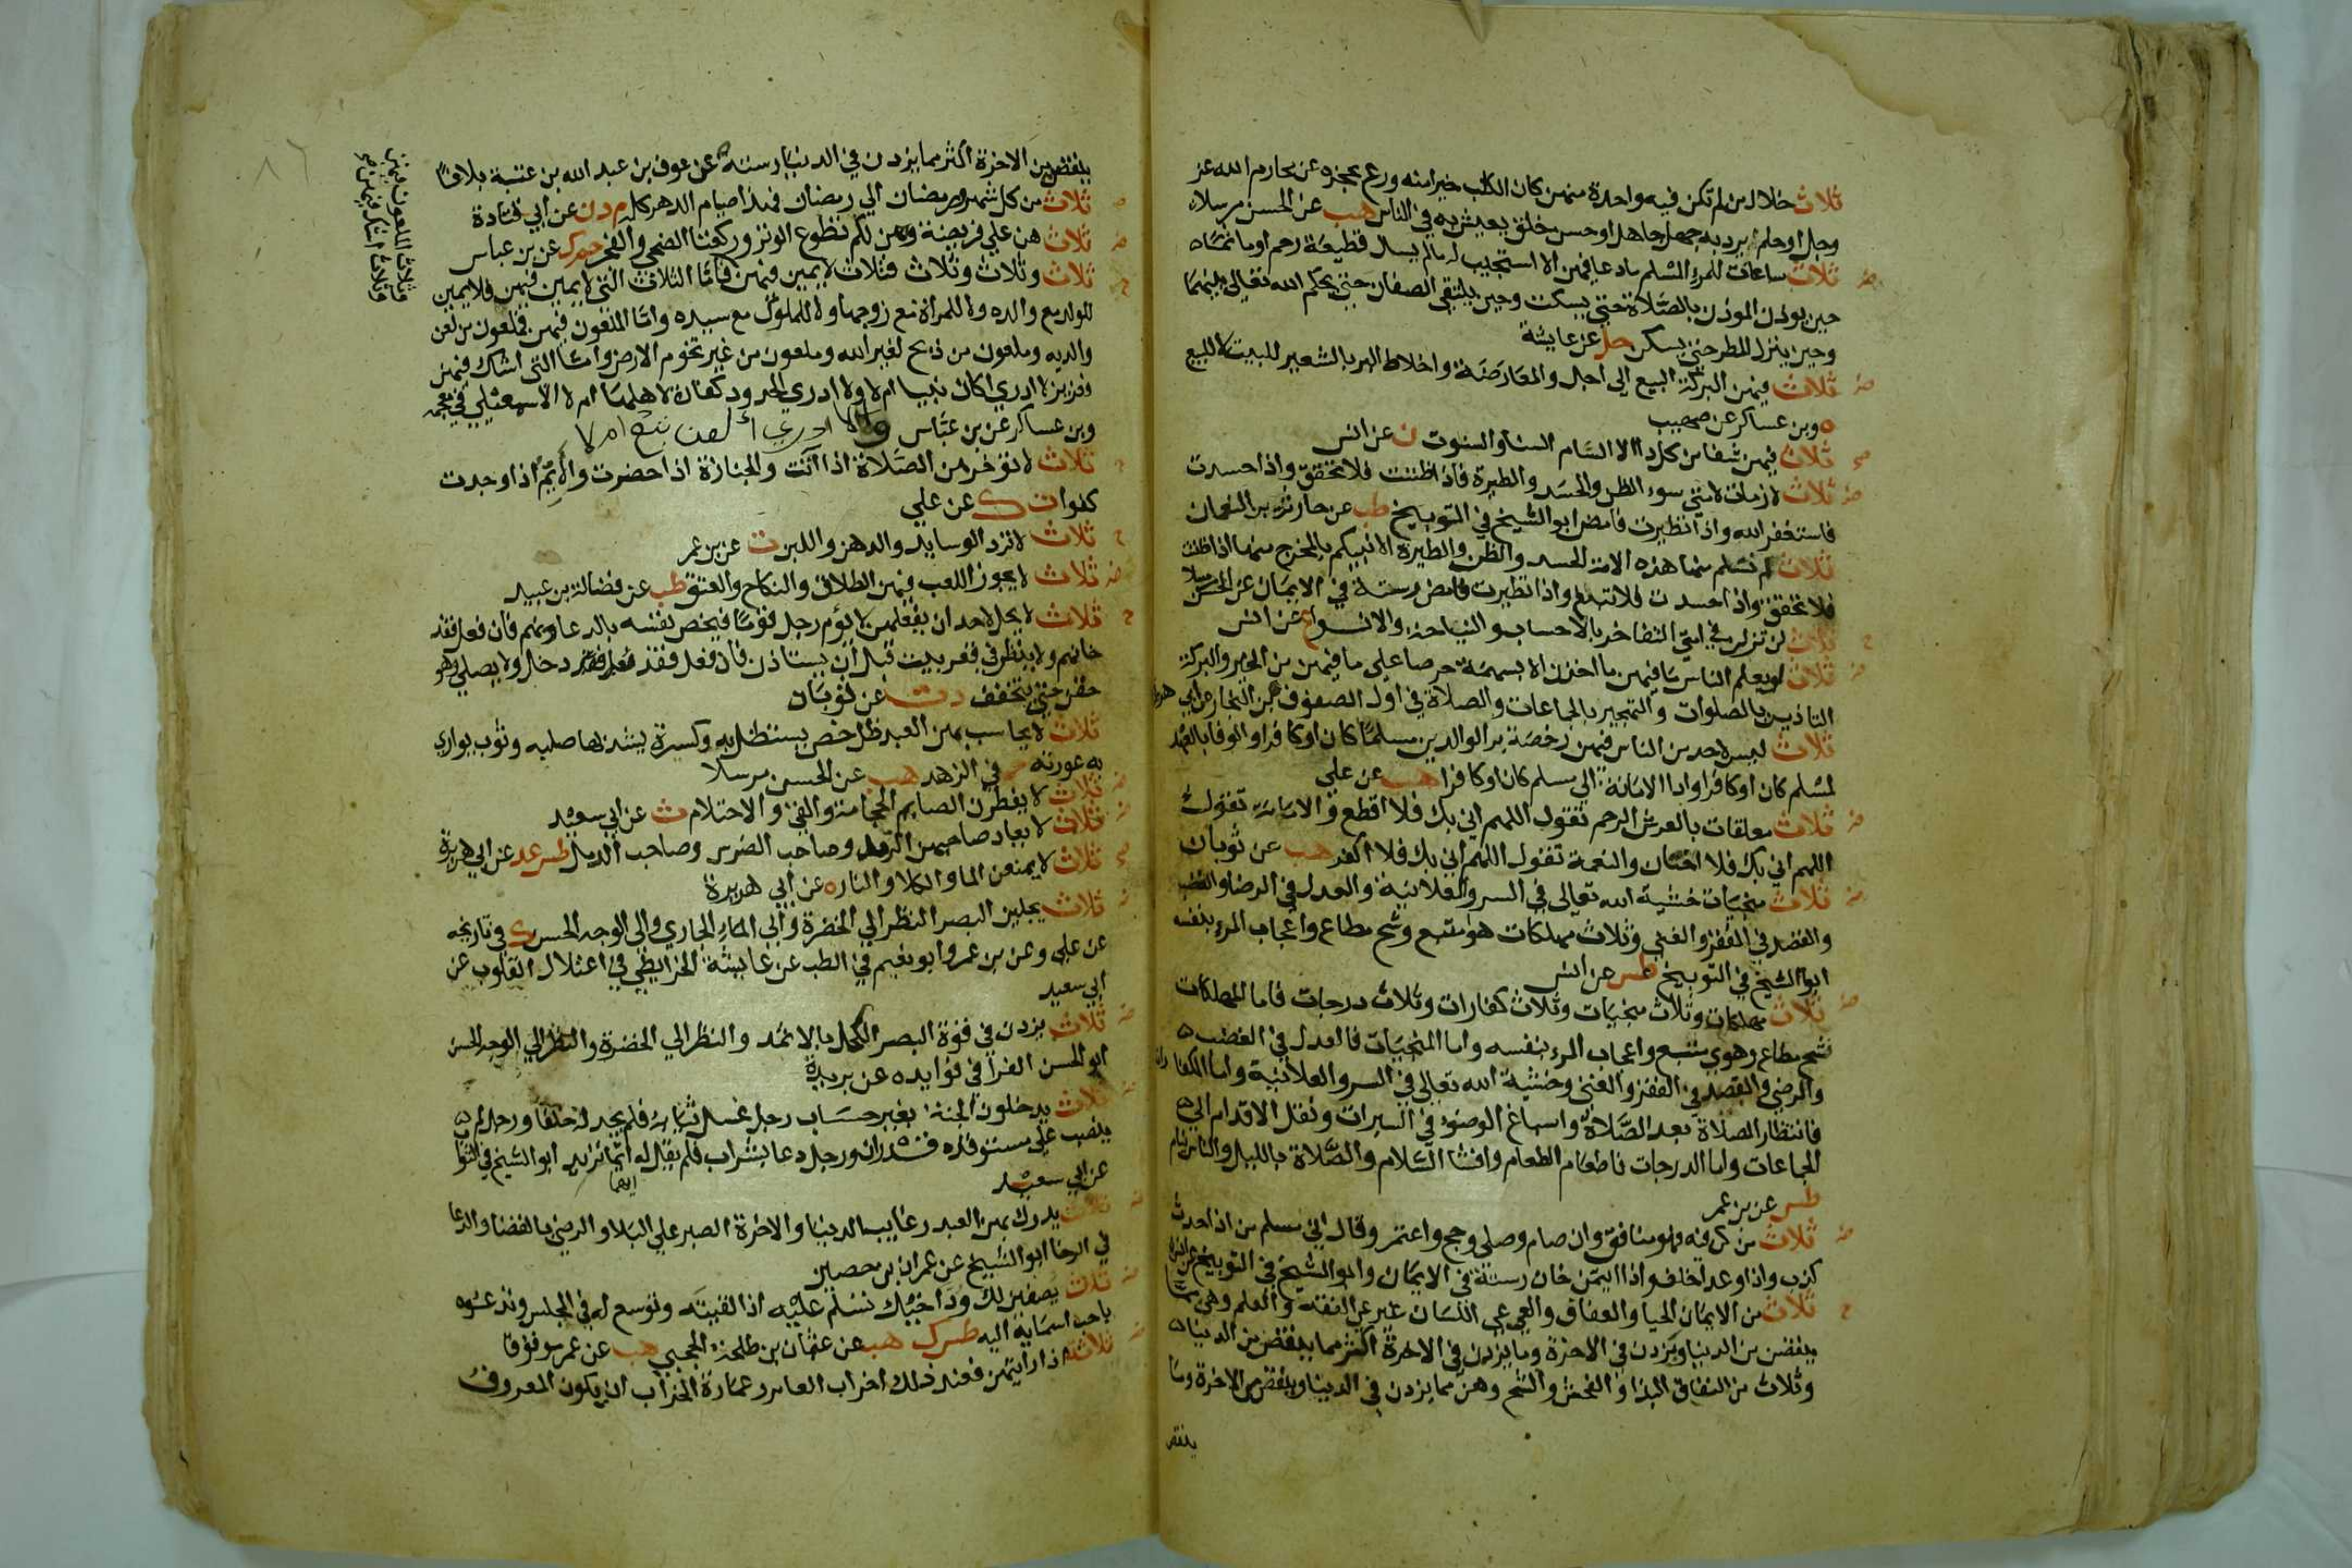 ثلاث خلال من لم تكن فيه واحدة منهن كان الكلب خيرا منه ورع يحجزه عن محارم الله عز
وجل او حلم يرد به جهل جاهل او حسن خلق يعيش به في الناس هب عن الحسن مرسلا
ثلاث ساعات للمرء المسلم ما دعا فيهن الا استجيب له مالم يسال قطيعة رحم او ماثما
حين يوذن الموذن بالصلاة حتي يسكت وحين يلتقي الصفان حتي يحكم الله تعالي بينهما
وحين ينزل المطر حتي يسكن حل عن عايشة
ثلاث فيهن البركة البيع الي اجل والمعارضة واخلاط البر بالشعير للبيت لا للبيع
ه وبن عساكر عن صهيب
ثلاث فيهن شفا من كل دا الا السام السنا والسنوت ن عن انس
ثلاث لازمات لامتي سوء الظن والحسد والطيرة فاذا ظننت فلا تحقق واذا حسدت
فاستغفر الله واذا تطيرت فامض ابو الشيخ في التوبيخ طب عن حارثة بن النعمان
ثلاث لم تسلم منها هذه الامة الحسد والظن والطيرة الا انبيكم بالمخرج منها اذا ظننت
فلا تحقق واذا حسدت فلا تبغ واذا تطيرت فامض رستة في الايمان عن الحسن مرسلا
ثلاث لن تزلن في امتي التفاخر بالاحساب والنياحة والانوا ع عن انس
ثلاث لو يعلم الناس ما فيهن ما اخذن الا بسهمة حرصا علي ما فيهن من الخير والبركة
التاذين بالصلوات والتهجير بالجماعات والصلاة في اول الصفوف بن النجار عن ابي هريرة
ثلاث ليس لاحد من الناس فيهن رخصة بر الوالدين مسلما كان او كافرا والوفا بالعهد
لمسلم كان او كافرا وادا الامانة الي مسلم كان او كافرا هب عن علي
ثلاث معلقات بالعرش الرحم تقول اللهم اني بك فلا اقطع والامانة تقول
اللهم اني بك فلا اختان والنعمة تقول اللهم اني بك فلا اكفر هب عن ثوبان
ثلاث منجيات خشية الله تعالى في السر والعلانية والعدل في الرضا والغضب
والقصد في الفقر والغني وثلاث مهلكات هوا متبع وشح مطاع واعجاب المرء بنفسه
ابوا الشيخ في التوبيخ طس عن انس
ثلاث مهلكات وثلاث منجيات وثلاث كفارات وثلاث درجات فاما المهلكات
فشح مطاع وهوي متبع واعجاب المرء بنفسه واما المنجيات فالعدل في الغضب
والرضي والقصد في الفقر والغني وخشية الله تعالي في السر والعلانية واما الكفارات
فانتظار الصلاة بعد الصلاة واسباغ الوضوء في السبرات ونقل الاقدام الي
الجماعات واما الدرجات فاطعام الطعام وافشا السلام والصلاة بالليل والناس نيام
طس عن بن عمر
ثلاث من كن فيه فهو منافق وان صام وصلي وحج واعتمر وقال اني مسلم من اذا حدث
كذب واذا وعد اخلف واذا ايتمن خان رستة في الايمان وابو الشيخ في التوبيخ عن انس
ثلاث من الايمان الحيا والعفاف والعي عي اللسان غير عي الفقه والعلم وهن مما
ينقصن من الدنيا ويزدن في الاخرة وما يزدن في الاخرة اكثر مما ينقصن من الدنيا
وثلاث من النفاق البذا والفحش والشح وهن مما يزدن في الدنيا وينقصن من الاخرة وما
ينقص
ينقصن من الاخرة اكثر مما يزدن في الدنيا رسته عن عوف بن عبد الله بن عتبة بلاغا
ثلاث من كل شهر ورمضان الي رمضان فهذا صيام الدهر كله م د ن عن ابي قتادة
ثلاث هن علي فريضة وهن لكم تطوع الوتر وركعتا الضحي والفجر حم ك عن بن عباس
ثلاث وثلاث وثلاث فثلاث لا يمين فيهن فاما الثلاث التي لا يمين فيهن فلا يمين
للولد مع والده ولا للمراة مع زوجها ولا للمملوك مع سيده واما الملعون فيهن فملعون من لعن
والديه وملعون من ذبح لغير الله وملعون من غير تخوم الارض واما التي اشك فيهن
فعزير لا ادري اكان نبيا ام لا ولا ادري الحدود كفارة لاهلها ام لا الاسمعيلي في معجمه
وبن عساكر عن بن عباس ولا ادري ألعن تبع ام لا
وثلاث الملعون فيهن
وثلاث اشك فيهن
ثلاث لا تؤخرهن الصلاة اذا اتت والجنازة اذا حضرت والأيّم اذا وجدت
كفوا ت ك عن علي
ثلاث لا ترد الوسايد والدهن واللبن ت عن بن عمر
ثلاث لا يجوز اللعب فيهن الطلاق والنكاح والعتق طب عن فضالة بن عبيد
ثلاث لا يحل لاحد ان يفعلهن لا يؤم رجل قوما فيخص نفسه بالدعا دونهم فان فعل فقد
خانهم ولا ينظر في قعر بيت قبل أن يستاذن فان فعل فقد دخل ولا يصلي وهو
حقن حتي يتخفف د ت عن ثوبان
ثلاث لا يحاسب بهن العبد ظل خص يستظل به وكسرة يشد بها صلبه وثوب يواري
به عورته حم في الزهد هب عن الحسن مرسلا
ثلاث لا يفطرن الصايم الحجامة والقي والاحتلام ت عن ابي سعيد
ثلاث لا يعاد صاحبهن الرمد وصاحب الضرس وصاحب الدمل طس عد عن ابي هريرة
ثلاث لا يمنعن الما والكلا والنار ه عن أبي هريرة
ثلاث يجلين البصر النظر الي الخضرة والي الماء الجاري والى الوجه الحسن ك في تاريخه
عن علي وعن بن عمر وابو نعيم في الطب عن عايشة الخرايطي في اعتلال القلوب عن
أبي سعيد
ثلاث يزدن في قوة البصر الكحل بالاثمد والنظر الي الخضرة والنظر الي الوجه الحسن
ابو الحسن الفرا في فوايده عن بريدة
ثلاث يدخلون الجنة بغير حساب رجل غسل ثيابه فلم يجد له خلقا ورجل لم
ينصب علي مستوقده قدران ورجل دعا بشراب فلم يقال له ايهما تريد ابو الشيخ في الثواب
عن ابي سعيد
ثلاث يدرك بهن العبد رغايب الدنيا والاخرة الصبر علي البلا والرضي بالقضا والدعا
في الرخا ابو الشيخ عن عمران بن حصين
ثلاث يصفين لك ود اخيك تسلم عليه اذا لقيته وتوسع له في المجلس وتدعوه
باحب اسمايه اليه طس ك هب عن عثمان بن طلحة الحجبي هب عن عمر موقوفا
ثلاث اذا رايتهن فعند ذلك اخراب العامر وعمارة الخراب ان يكون المعروف